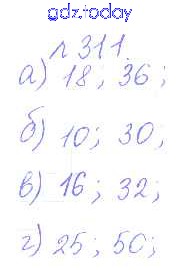 gdz.today
№311.
а) 18; 36;
б) 10; 30;
в) 16; 32;
г) 25; 50;